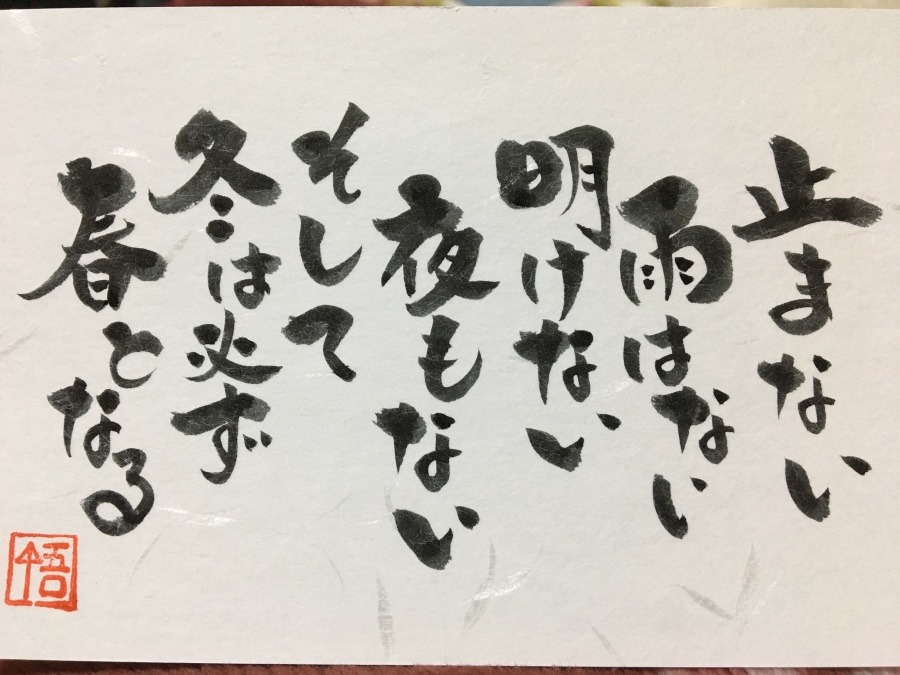 止まない
雨はない
明けない
夜もない
そして
冬は必ず
春となる
悟